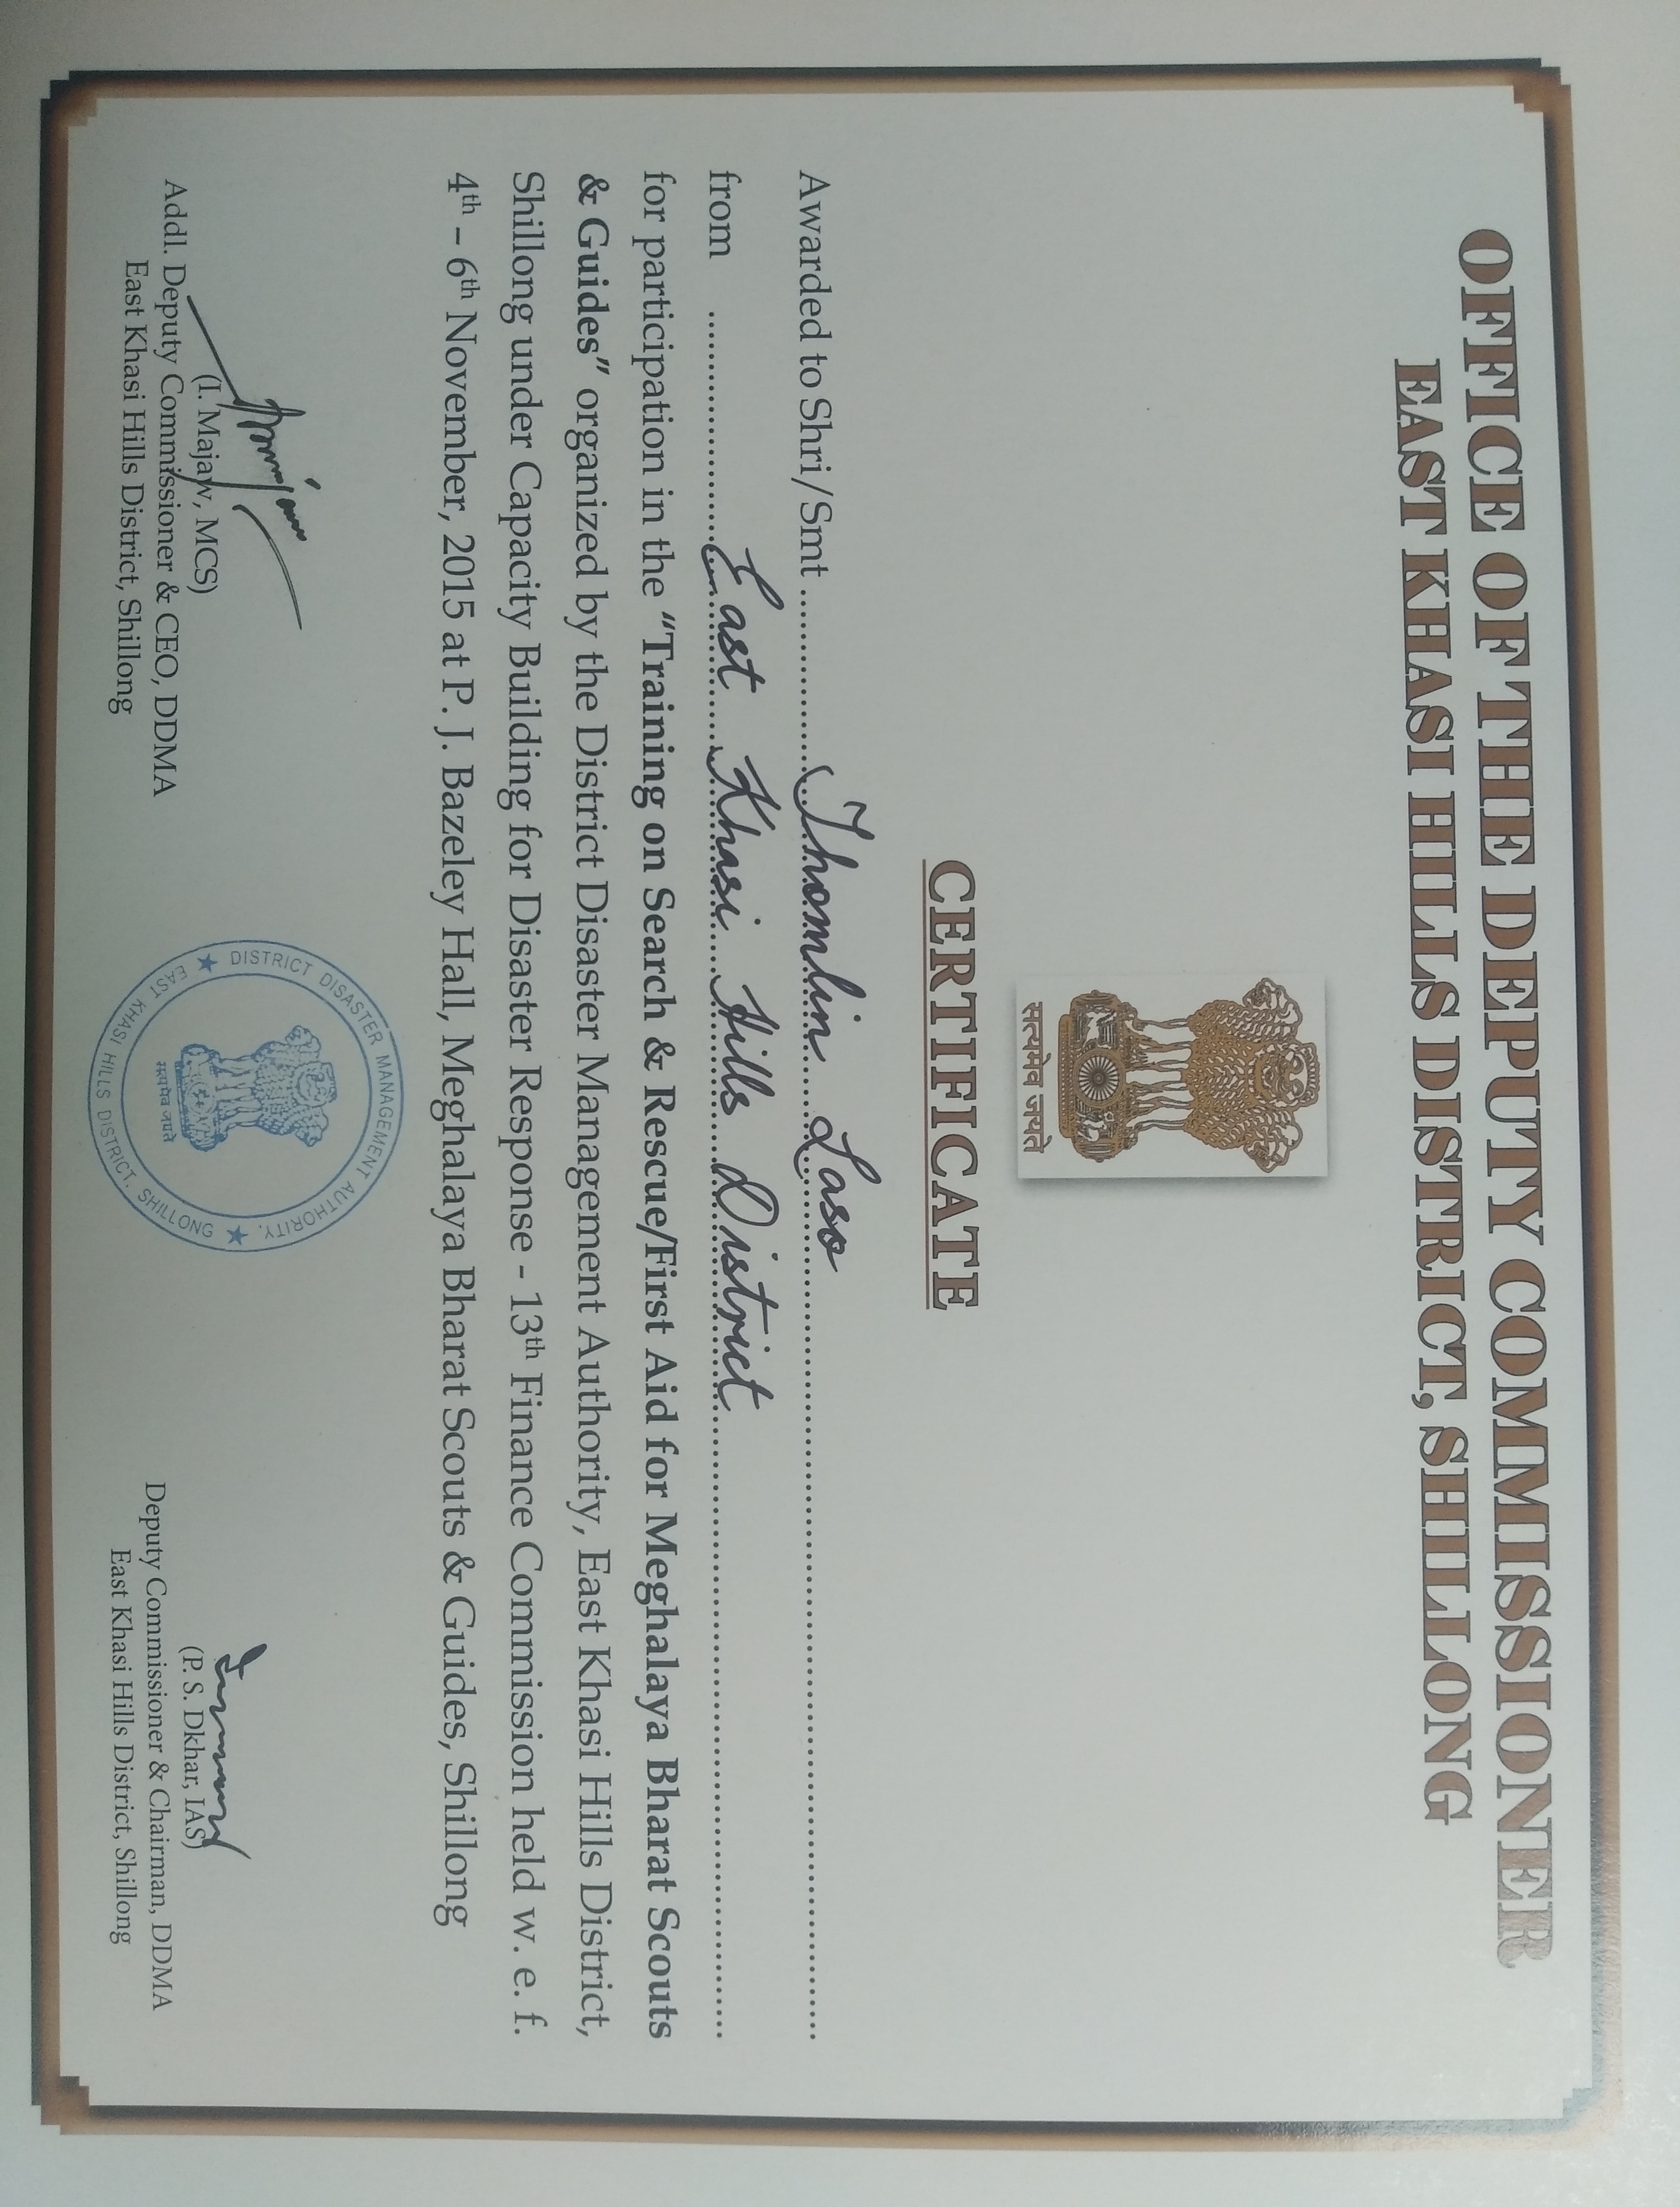 OFFICE OF THE DEPUTY COMMISSIONER
EAST KHASI HILLS DISTRICT, SHILLONG
सत्यमेव जयते
CERTIFICATE
Awarded to Shri/Smt ........ Thomlin Laso ........
from ........ East Khasi Hills District ........
for participation in the “Training on Search & Rescue/First Aid for Meghalaya Bharat Scouts
& Guides” organized by the District Disaster Management Authority, East Khasi Hills District,
Shillong under Capacity Building for Disaster Response - 13th Finance Commission held w. e. f.
4th – 6th November, 2015 at P. J. Bazeley Hall, Meghalaya Bharat Scouts & Guides, Shillong
(I. Majaw, MCS)
Addl. Deputy Commissioner & CEO, DDMA
East Khasi Hills District, Shillong
★ DISTRICT DISASTER MANAGEMENT AUTHORITY. ★
EAST KHASI HILLS DISTRICT, SHILLONG
सत्यमेव जयते
(P. S. Dkhar, IAS)
Deputy Commissioner & Chairman, DDMA
East Khasi Hills District, Shillong